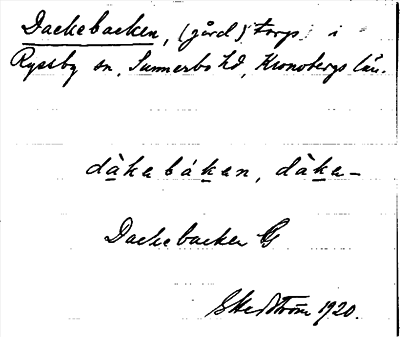 Dackebacken, (gård) torp i
Ryssby sn, Sunnerbo hd, Kronobergs län.
dàkabákan, dàka-
Dackebacken G
Hedström 1920.